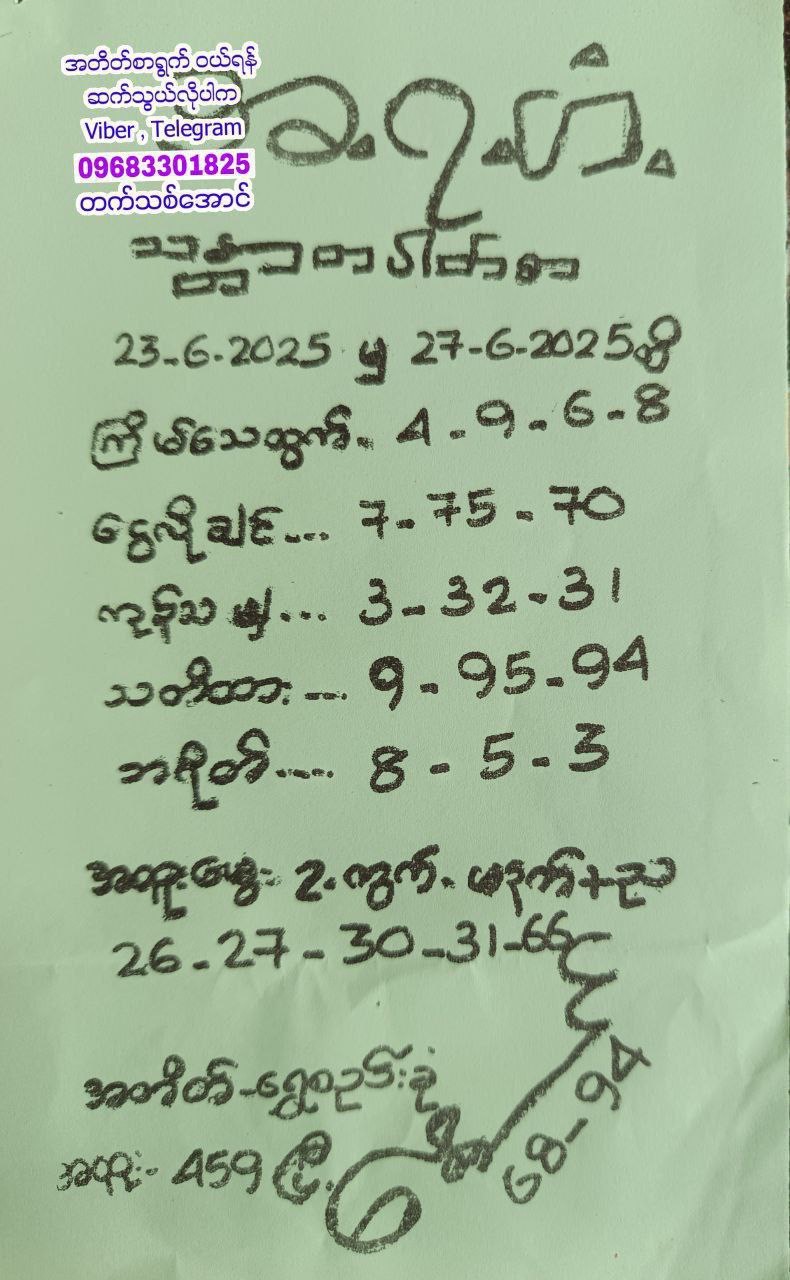 အတိတ်စာရွက် ဝယ်ရန်
ဆက်သွယ်လိုပါက
Viber , Telegram
09683301825
တက်သစ်အောင်
သန္တာတပါတ်စာ
23-6-2025 မှ 27-6-2025 ထိ
ကြိမ်သေထွက်.. 4-9-6-8
ငွေလိုချင်.... 7-75-70
ကုန်သမျှ.... 3-32-31
သတိထား.... 9-95-94
ဘရိတ်.... 8-5-3
အထူးမွေး 2.ကွက်. မနက်+ညသ
26-27-30-31-66
68-94
အတိတ်-ရွှေစည်းခုံ
အထူး- 459 ပြီး